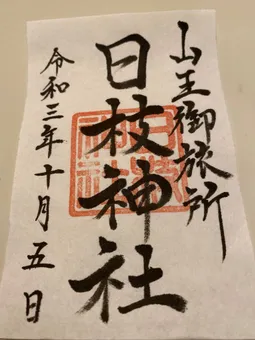 山王御旅所
日枝神社
令和三年十月五日